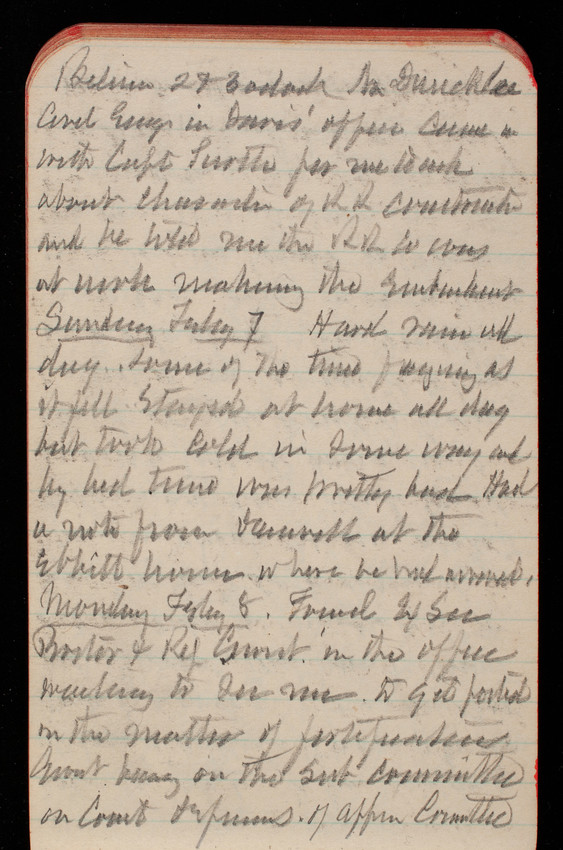 2 & 3 oclock Mr
Civil Engr in Davis' office came in
with Capt Turtle for me to ask
about character of RR
and he told me the RR Co was
at work making the Embankment
Sunday Feby 7 Hard rain all
day. Some of the time freezing as
it fell Stayed at home all day
but took cold in some way and
by bed time was pretty bad Had
a note from at the
Ebbitt house where he had arrived.
Monday Feby 8. Found Ex Sec
& Rep in the office
waiting to see me to get posted
on the matter of fortifications
being on the sub committee
on Coast defenses. of Appn Committee